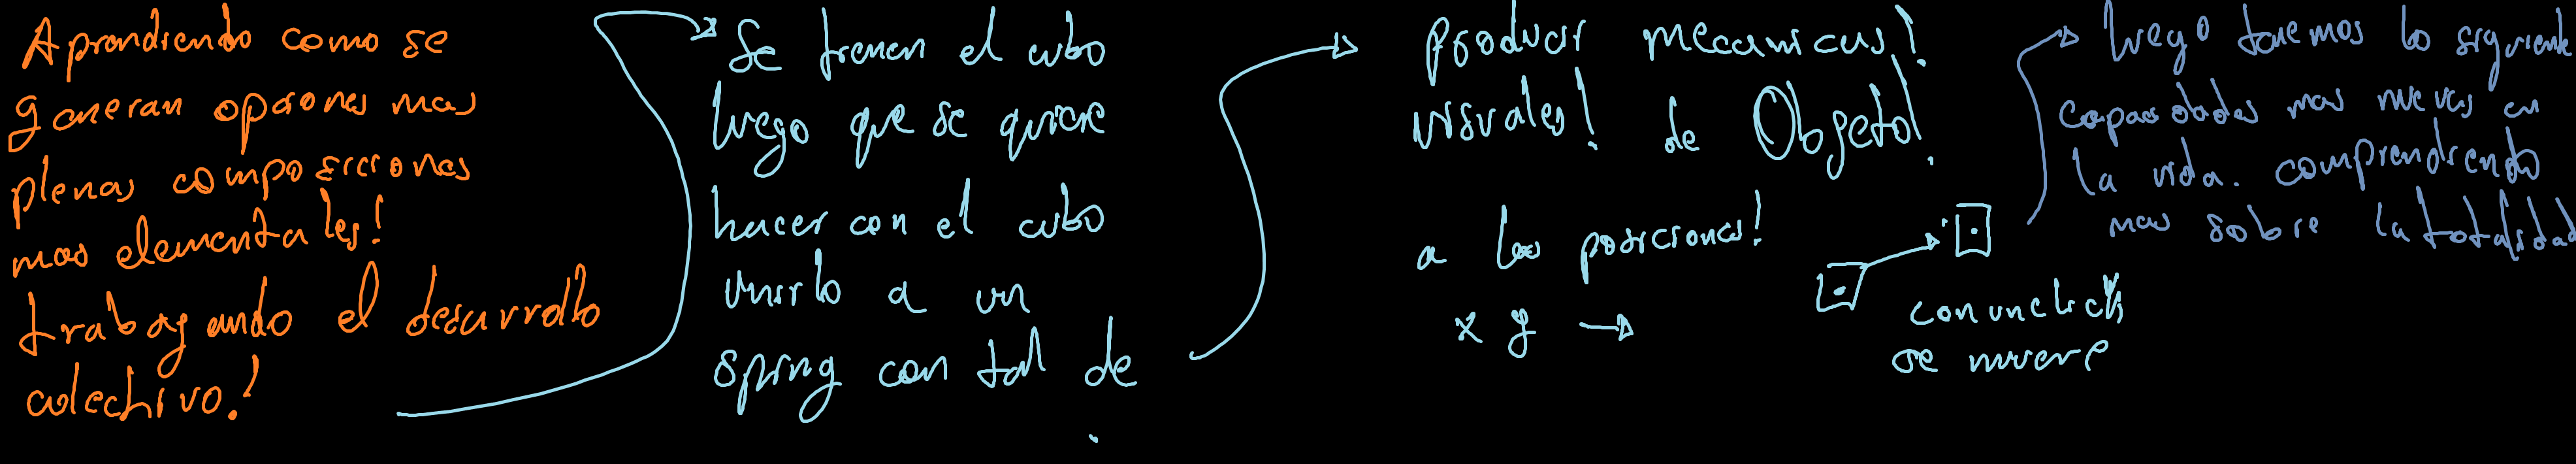 Aprendiendo como se
generan opciones mas
plenas composiciones
mas elementales!
trabajando el desarrollo
colectivo!
Se tienen el cubo
luego que se quiere
hacer con el cubo
unirlo a un
spring con tal de
producir mecanicas!
visuales! de Objeto!
a las posiciones!
x y →
con un click
se mueve
luego tenemos lo siguiente
capacidades mas nuevas en
la vida. comprendiendo
mas sobre la totalidad